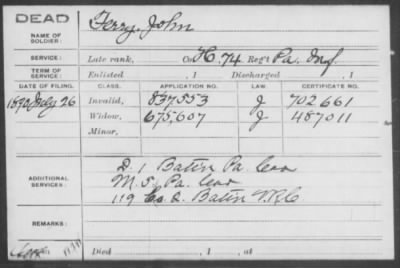 DEAD
NAME OF SOLDIER: Terry, John
SERVICE: Late rank, Co. H. 74 Reg't Pa. Inf
TERM OF SERVICE: Enlisted , 1 Discharged , 1
DATE OF FILING. CLASS. APPLICATION NO. LAW. CERTIFICATE NO.
1890 July 26 Invalid, 837553 J 702661
Widow, 675,607 J 487011
Minor,
ADDITIONAL SERVICES: D. 1 Batln Pa. Cav
M. 5, Pa. Cav
119 Co. 2. Batln V.R.C
REMARKS:
Died , 1 , at